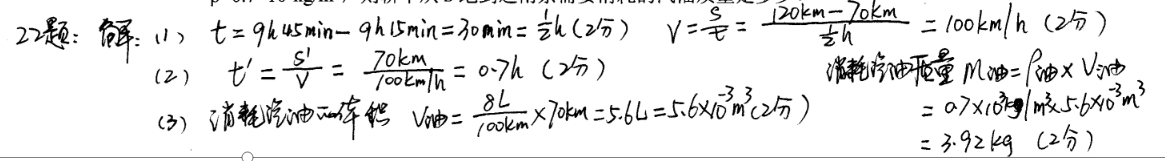 22题: 解: (1) t = 9h45min - 9h15min = 30min = 1/2 h (2分) V = S/t = (120km - 70km)/(1/2 h) = 100km/h (2分)
(2) t' = S'/V = 70km/(100km/h) = 0.7h (2分)
(3) 消耗汽油的体积 V油 = 8L/100km × 70km = 5.6L = 5.6×10⁻³m³ (2分)
消耗汽油质量 M油 = ρ油 × V油
= 0.7×10³kg/m³ × 5.6×10⁻³m³
= 3.92kg (2分)